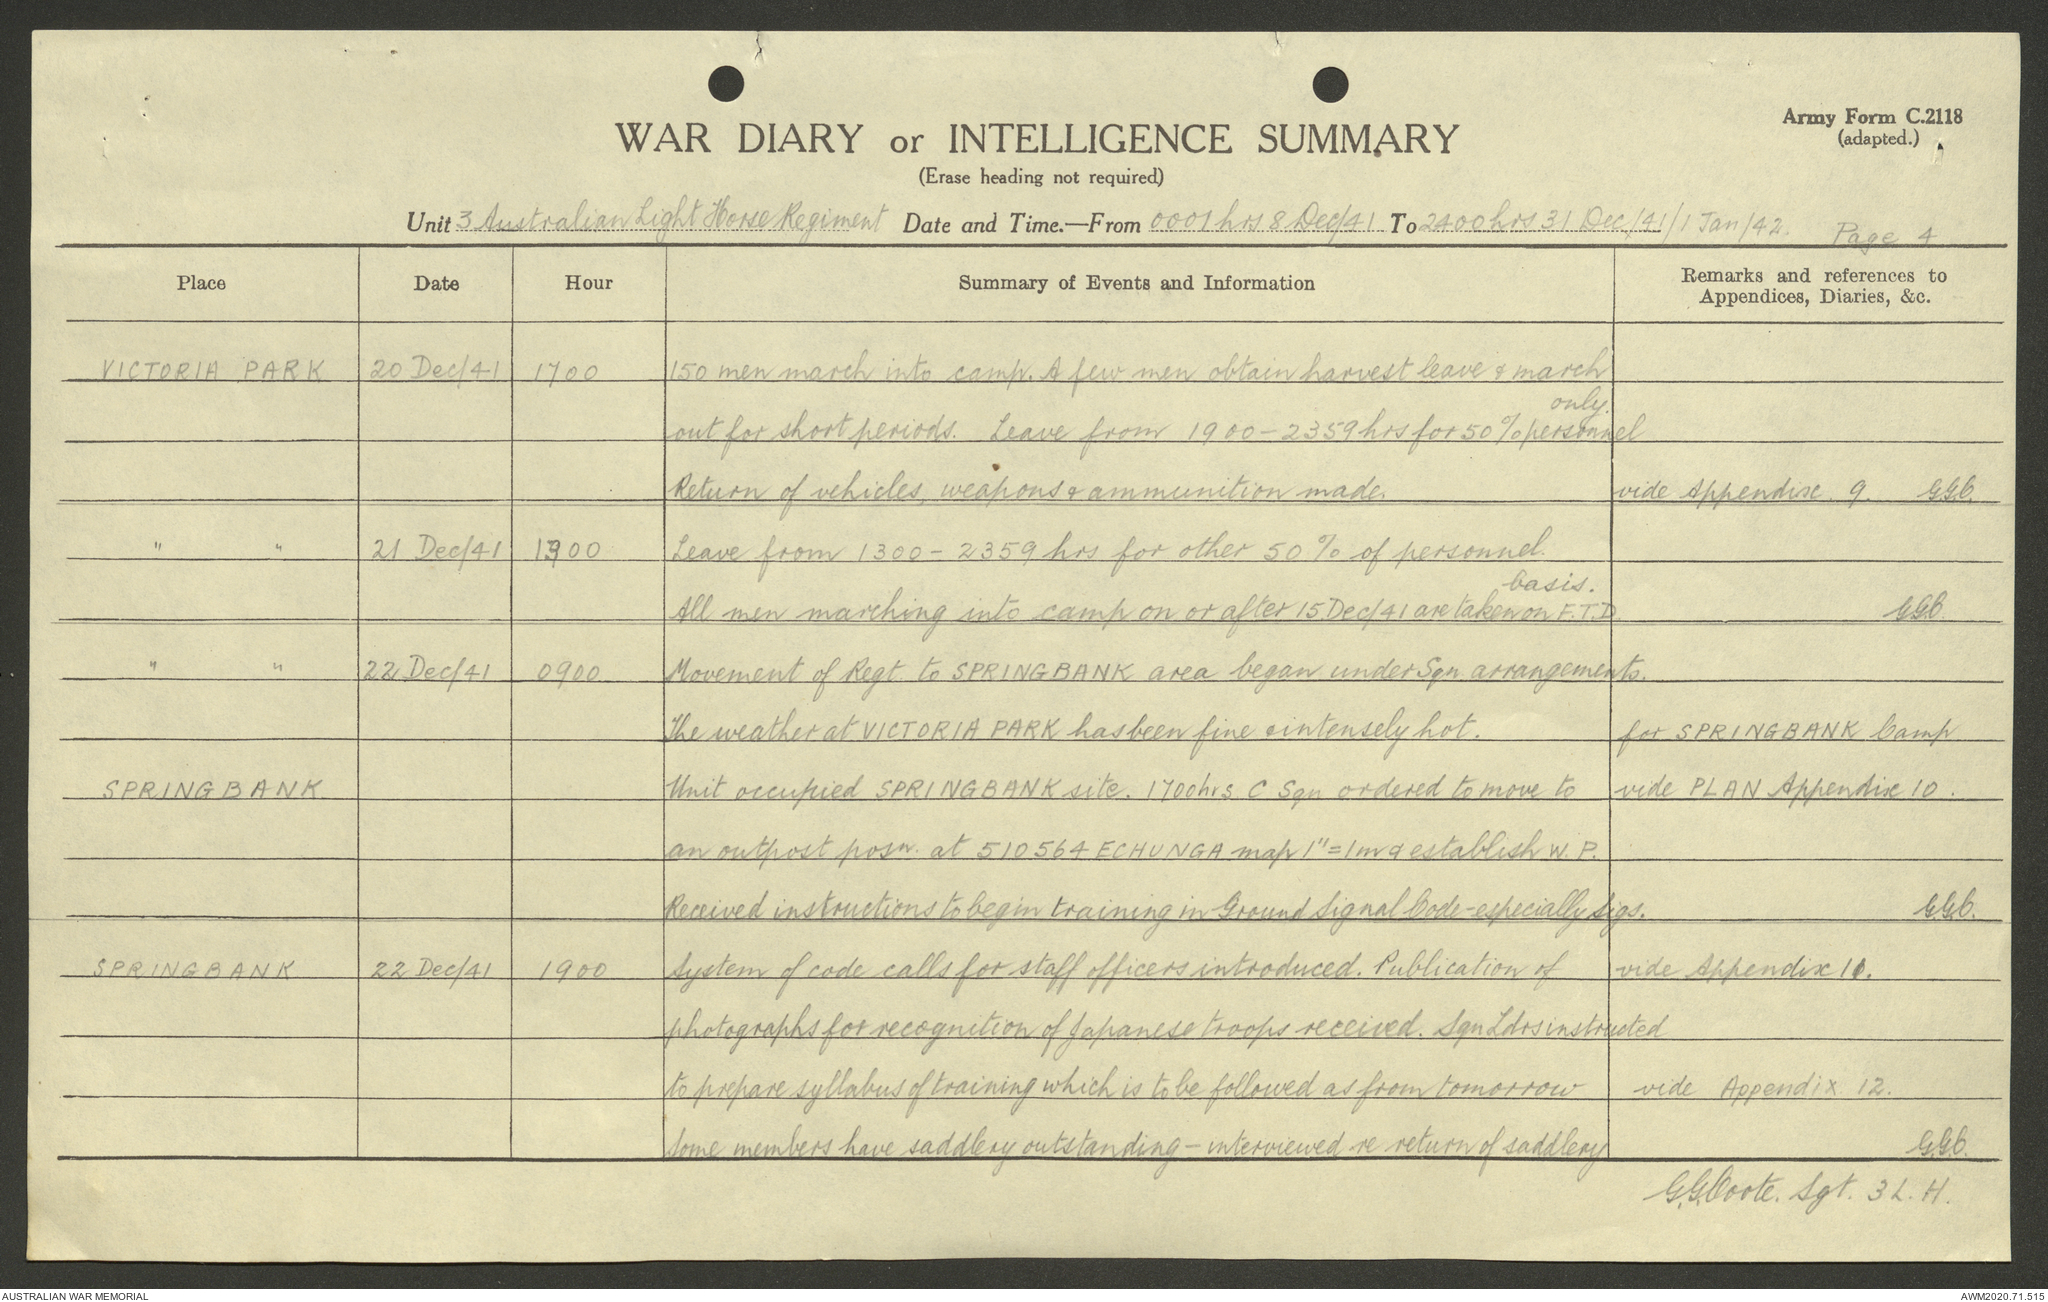 Army Form C.2118
(adapted.)
WAR DIARY or INTELLIGENCE SUMMARY
(Erase heading not required)
Unit 3 Australian Light Horse Regiment Date and Time.—From 0001 hrs 8 Dec/41 To 2400 hrs 31 Dec/41/1 Jan/42. Page 4
Place Date Hour Summary of Events and Information Remarks and references to
Appendices, Diaries, &c.
VICTORIA PARK 20 Dec/41 1700 150 men march into camp. A few men obtain harvest leave & march
only.
out for short periods. Leave from 1900 - 2359 hrs for 50% personnel
Return of vehicles, weapons & ammunition made. vide Appendix 9. G.G.C.
" " 21 Dec/41 1300 Leave from 1300 - 2359 hrs for other 50% of personnel.
basis.
All men marching into camp on or after 15 Dec/41 are taken on F.T.D. G.G.C.
" " 22 Dec/41 0900 Movement of Regt to SPRINGBANK area began under Sqn arrangements.
The weather at VICTORIA PARK has been fine & intensely hot. for SPRINGBANK Camp
SPRINGBANK Unit occupied SPRINGBANK site. 1700 hrs C Sqn ordered to move to vide PLAN Appendix 10.
an outpost posn. at 510564 ECHUNGA map 1" = 1m & establish W. P.
Received instructions to begin training in Ground Signal Code - especially Sigs. G.G.C.
SPRINGBANK 22 Dec/41 1900 System of code calls for staff officers introduced. Publication of vide Appendix 11.
photographs for recognition of Japanese troops received. Sqn Ldrs instructed
to prepare syllabus of training which is to be followed as from tomorrow vide Appendix 12.
Some members have saddlery outstanding - interviewed re return of saddlery G.G.C.
G.G. Coote. Sgt. 3 L. H.
AUSTRALIAN WAR MEMORIAL AWM2020.71.515